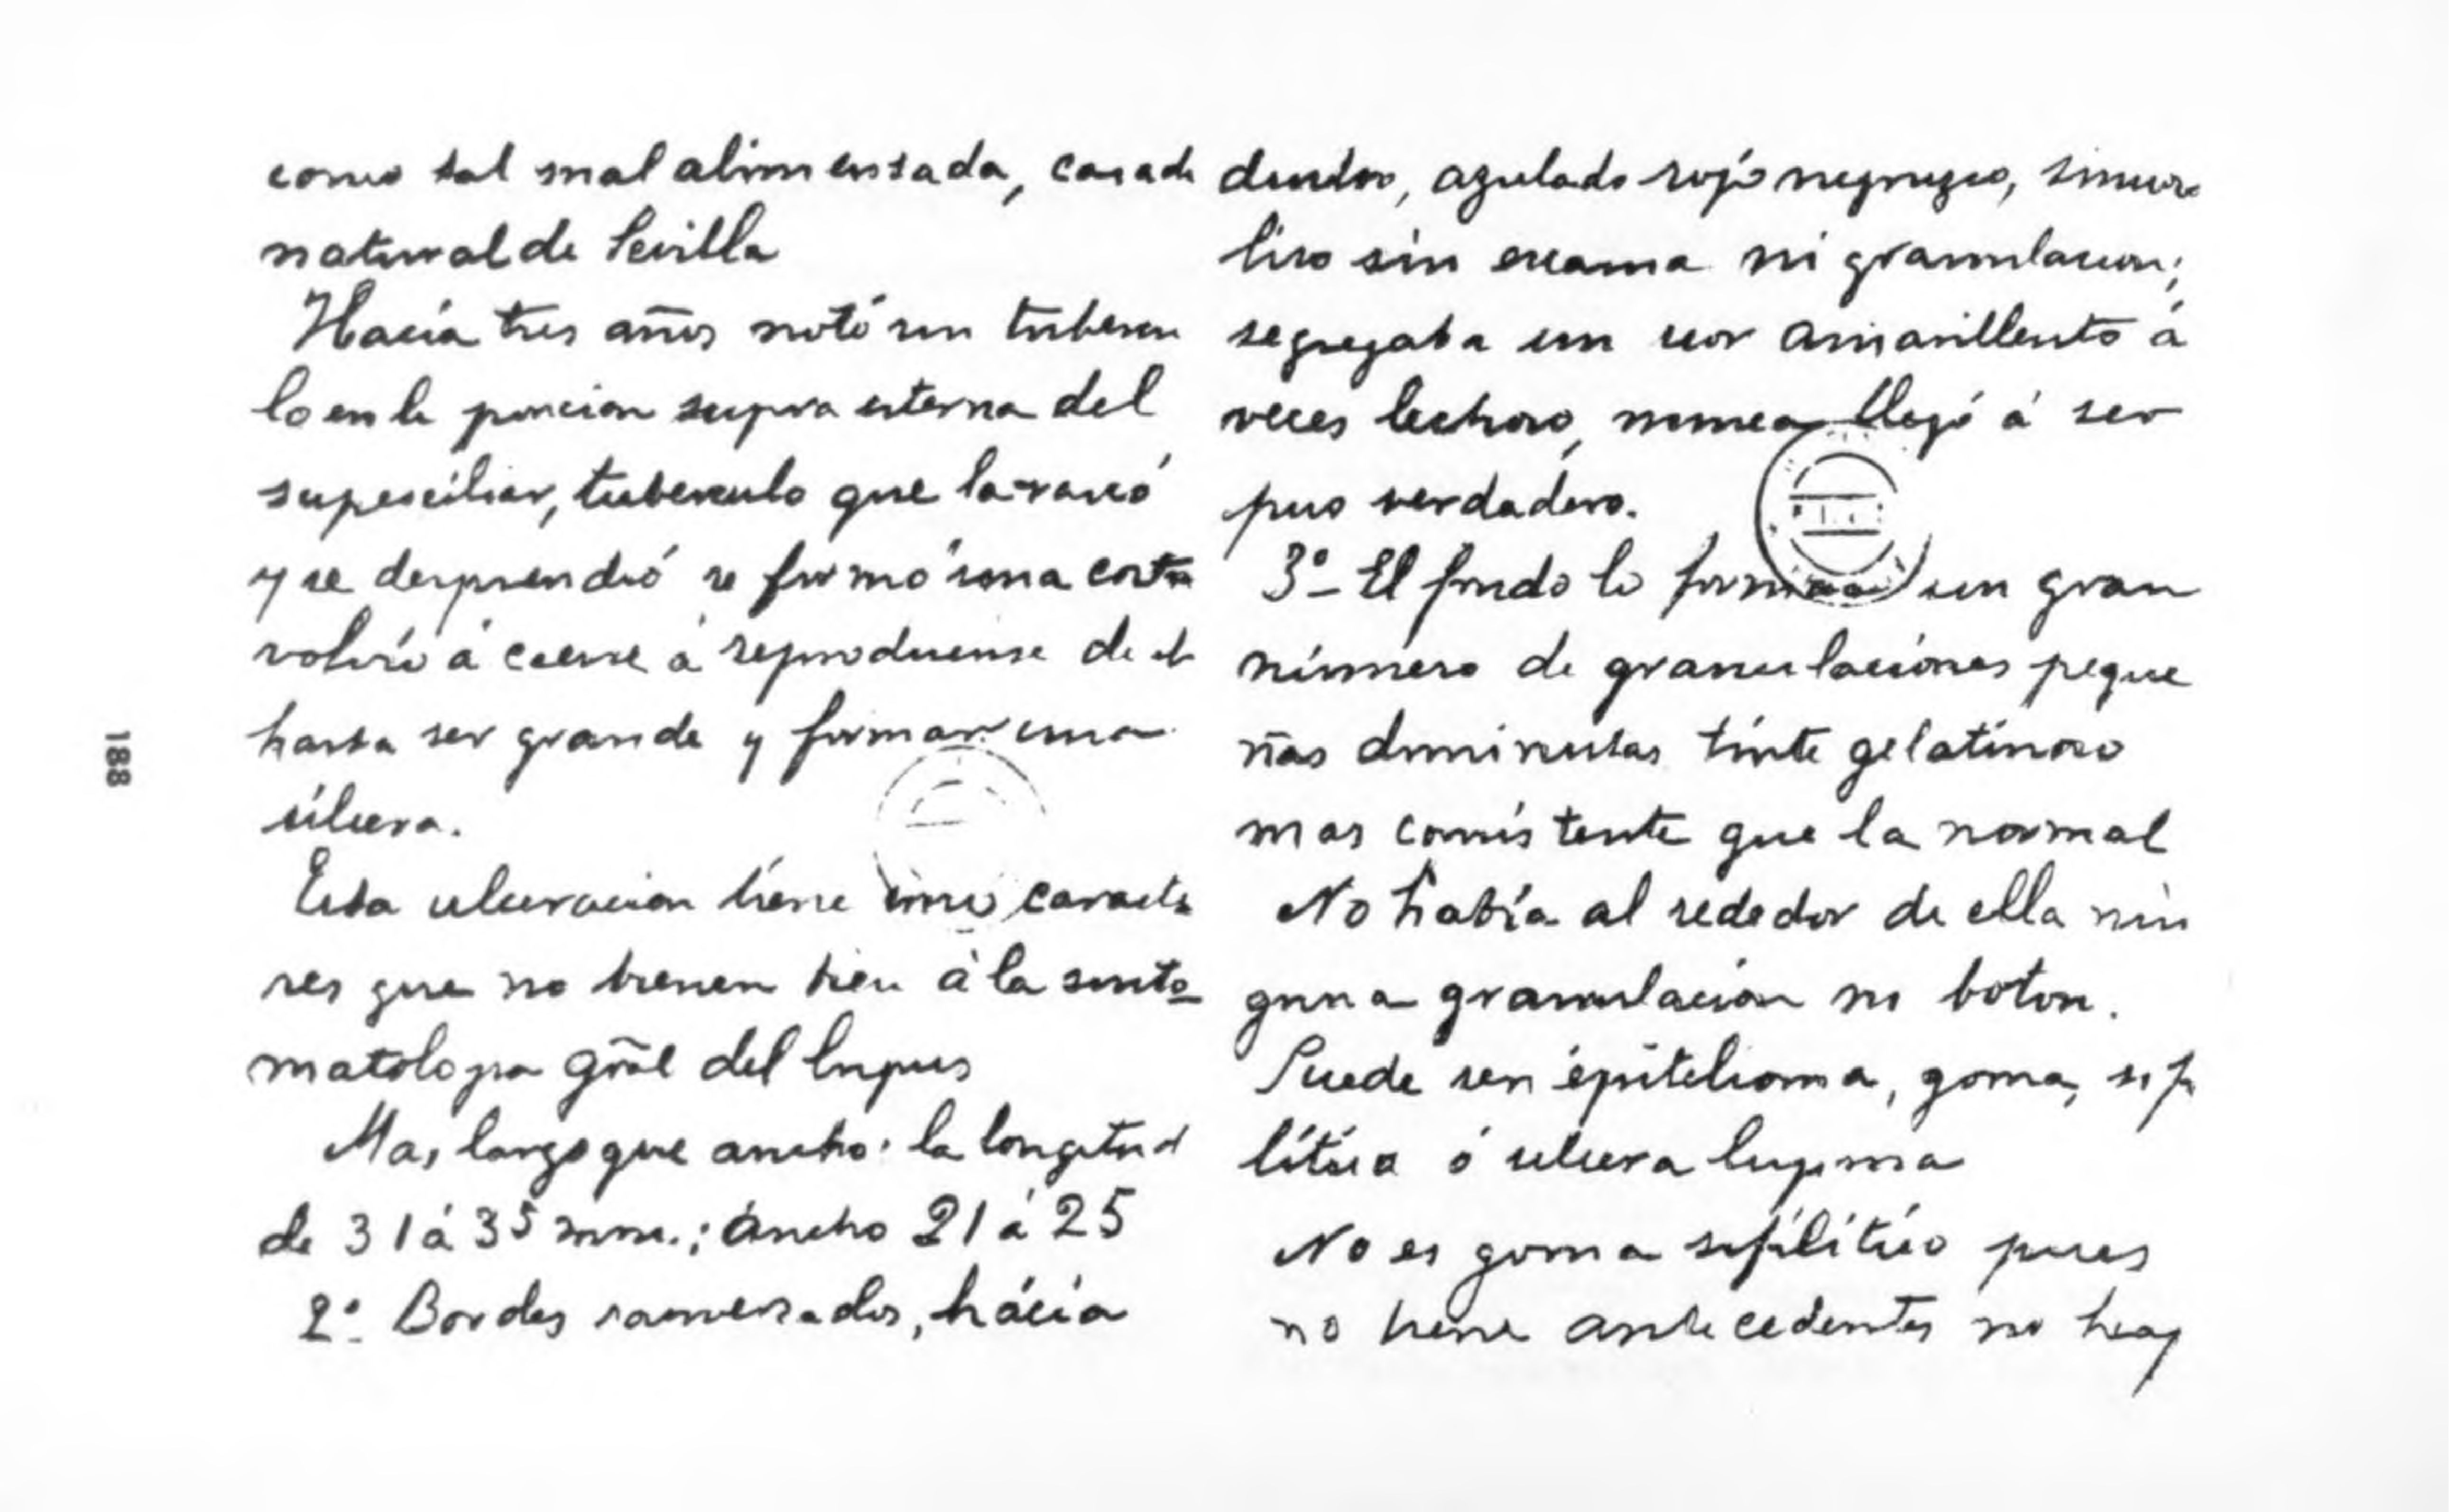 como tal mal alimentada, casada
natural de Sevilla
Hacía tres años notó un tubercu
lo en la porcion supra externa del
superciliar, tuberculo que la rascó
y se desprendió se formó una costra
volvió á caerse á reproducirse
hasta ser grande y formar una
úlcera.
Esta ulceracion tiene caracte
res que no vienen bien á la sinto
matologia gral del lupus
Mas largo que ancho: la longitud
de 31 á 35 mm.; ancho 21 á 25
2º. Bordes hácia
dentro, azulado rojo negruzco,
liso sin escama ni granulacion;
segregaba un amarillento á
veces lechoso, nunca llegó á ser
pus verdadero.
3º - El fondo lo un gran
número de granulaciones peque
ñas diminutas tinte gelatinoso
mas consistente que la normal
No había al rededor de ella nin
guna granulacion ni boton.
Puede ser epitelioma, goma, sifi
lítica ó ulcera luposa
No es goma sifilítico pues
no tiene antecedentes no hay
188